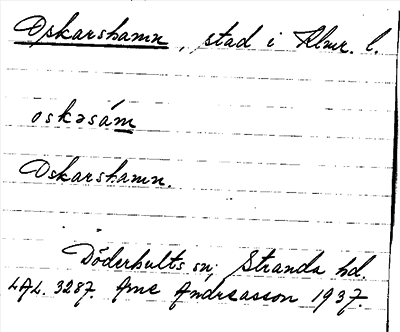 Oskarshamn, stad i Klmr. l.
oskəsám
Oskarshamn.
Döderhults sn, Stranda hd.
LAL. 3287. Arne Andreasson 1937.